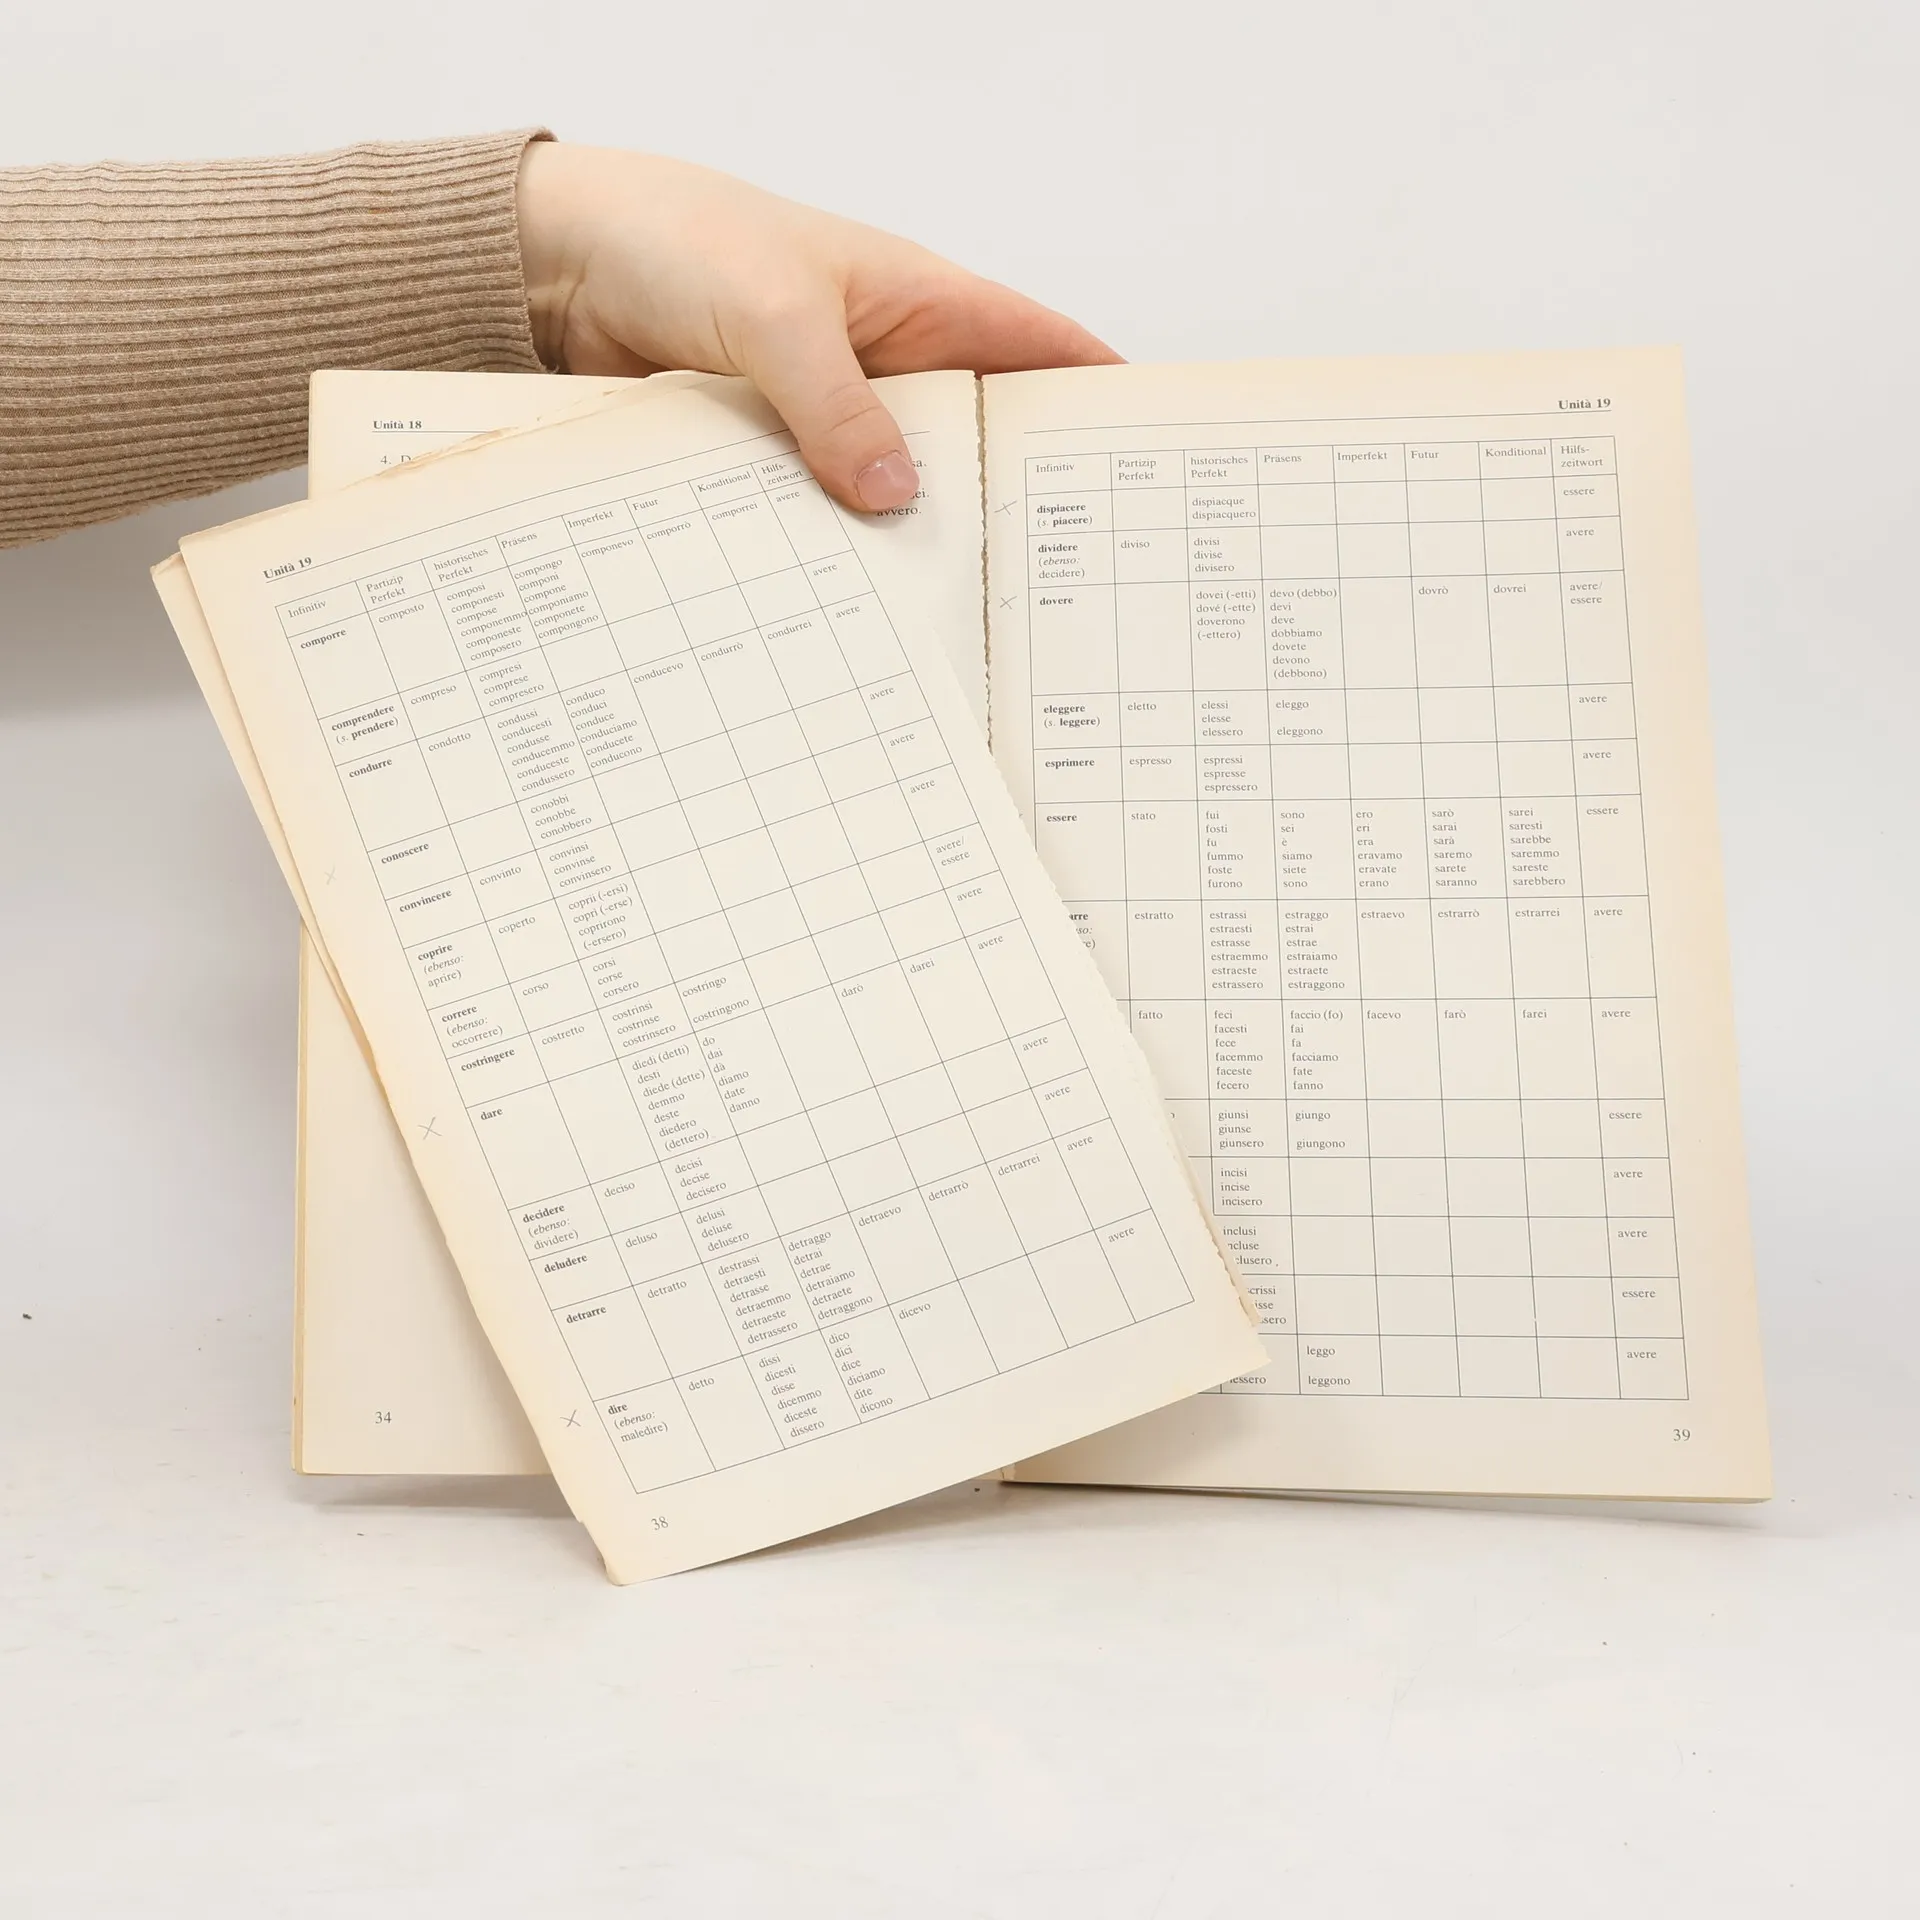 Unità 18
4. D
sa.
ei.
avvero.
34
Unità 19
Infinitiv Partizip Perfekt historisches Perfekt Präsens Imperfekt Futur Konditional Hilfs-zeitwort
comporre composto composi compongo componevo comporrò comporrei avere
componesti componi
compose compone
componemmo componiamo
componeste componete
composero compongono
comprendere compreso compresi avere
(s. prendere) comprese
compresero
condurre condotto condussi conduco conducevo condurrò condurrei avere
conducesti conduci
condusse conduce
conducemmo conduciamo
conduceste conducete
condussero conducono
conoscere conobbi avere
conobbe
conobbero
convincere convinto convinsi avere
convinse
convinsero
coprire coperto coprii (-ersi) avere
(ebenso: coprì (-erse)
aprire) coprirono
(-ersero)
correre corso corsi avere/
(ebenso: corse essere
occorrere) corsero
costringere costretto costrinsi costringo avere
costrinse
costrinsero costringono
dare diedi (detti) do darò darei avere
desti dai
diede (dette) dà
demmo diamo
deste date
diedero danno
(dettero)
decidere deciso decisi avere
(ebenso: decise
dividere) decisero
deludere deluso delusi avere
deluse
delusero
detrarre detratto destrassi detraggo detraevo detrarrò detrarrei avere
detraesti detrai
detrasse detrae
detraemmo detraiamo
detraeste detraete
detrassero detraggono
dire detto dissi dico dicevo avere
(ebenso: dicesti dici
maledire) disse dice
dicemmo diciamo
diceste dite
dissero dicono
38
Unità 19
Infinitiv Partizip Perfekt historisches Perfekt Präsens Imperfekt Futur Konditional Hilfs-zeitwort
dispiacere dispiacque essere
(s. piacere) dispiacquero
dividere diviso divisi avere
(ebenso: divise
decidere) divisero
dovere dovei (-etti) devo (debbo) dovrò dovrei avere/
dové (-ette) devi essere
doverono deve
(-ettero) dobbiamo
dovete
devono
(debbono)
eleggere eletto elessi eleggo avere
(s. leggere) elesse
elessero eleggono
esprimere espresso espressi avere
espresse
espressero
essere stato fui sono ero sarò sarei essere
fosti sei eri sarai saresti
fu è era sarà sarebbe
fummo siamo eravamo saremo saremmo
foste siete eravate sarete sareste
furono sono erano saranno sarebbero
arre estratto estrassi estraggo estraevo estrarrò estrarrei avere
so: estraesti estrai
re) estrasse estrae
estraemmo estraiamo
estraeste estraete
estrassero estraggono
fatto feci faccio (fo) facevo farò farei avere
facesti fai
fece fa
facemmo facciamo
faceste fate
fecero fanno
giunsi giungo essere
giunse
giunsero giungono
incisi avere
incise
incisero
inclusi avere
ncluse
clusero
crissi essere
isse
ssero
leggo avere
lessero leggono
39